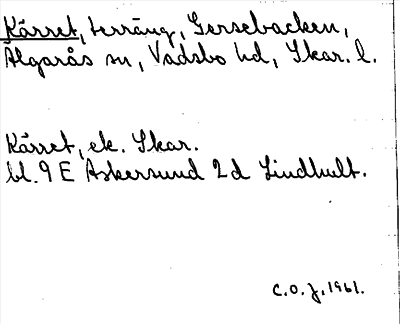 Kärret, terräng, Gersebacken,
Älgarås sn, Vadsbo hd, Skar. l.
Kärret, ek. Skar.
bl. 9 E Askersund 2d Lindhult.
C.O.J. 1961.